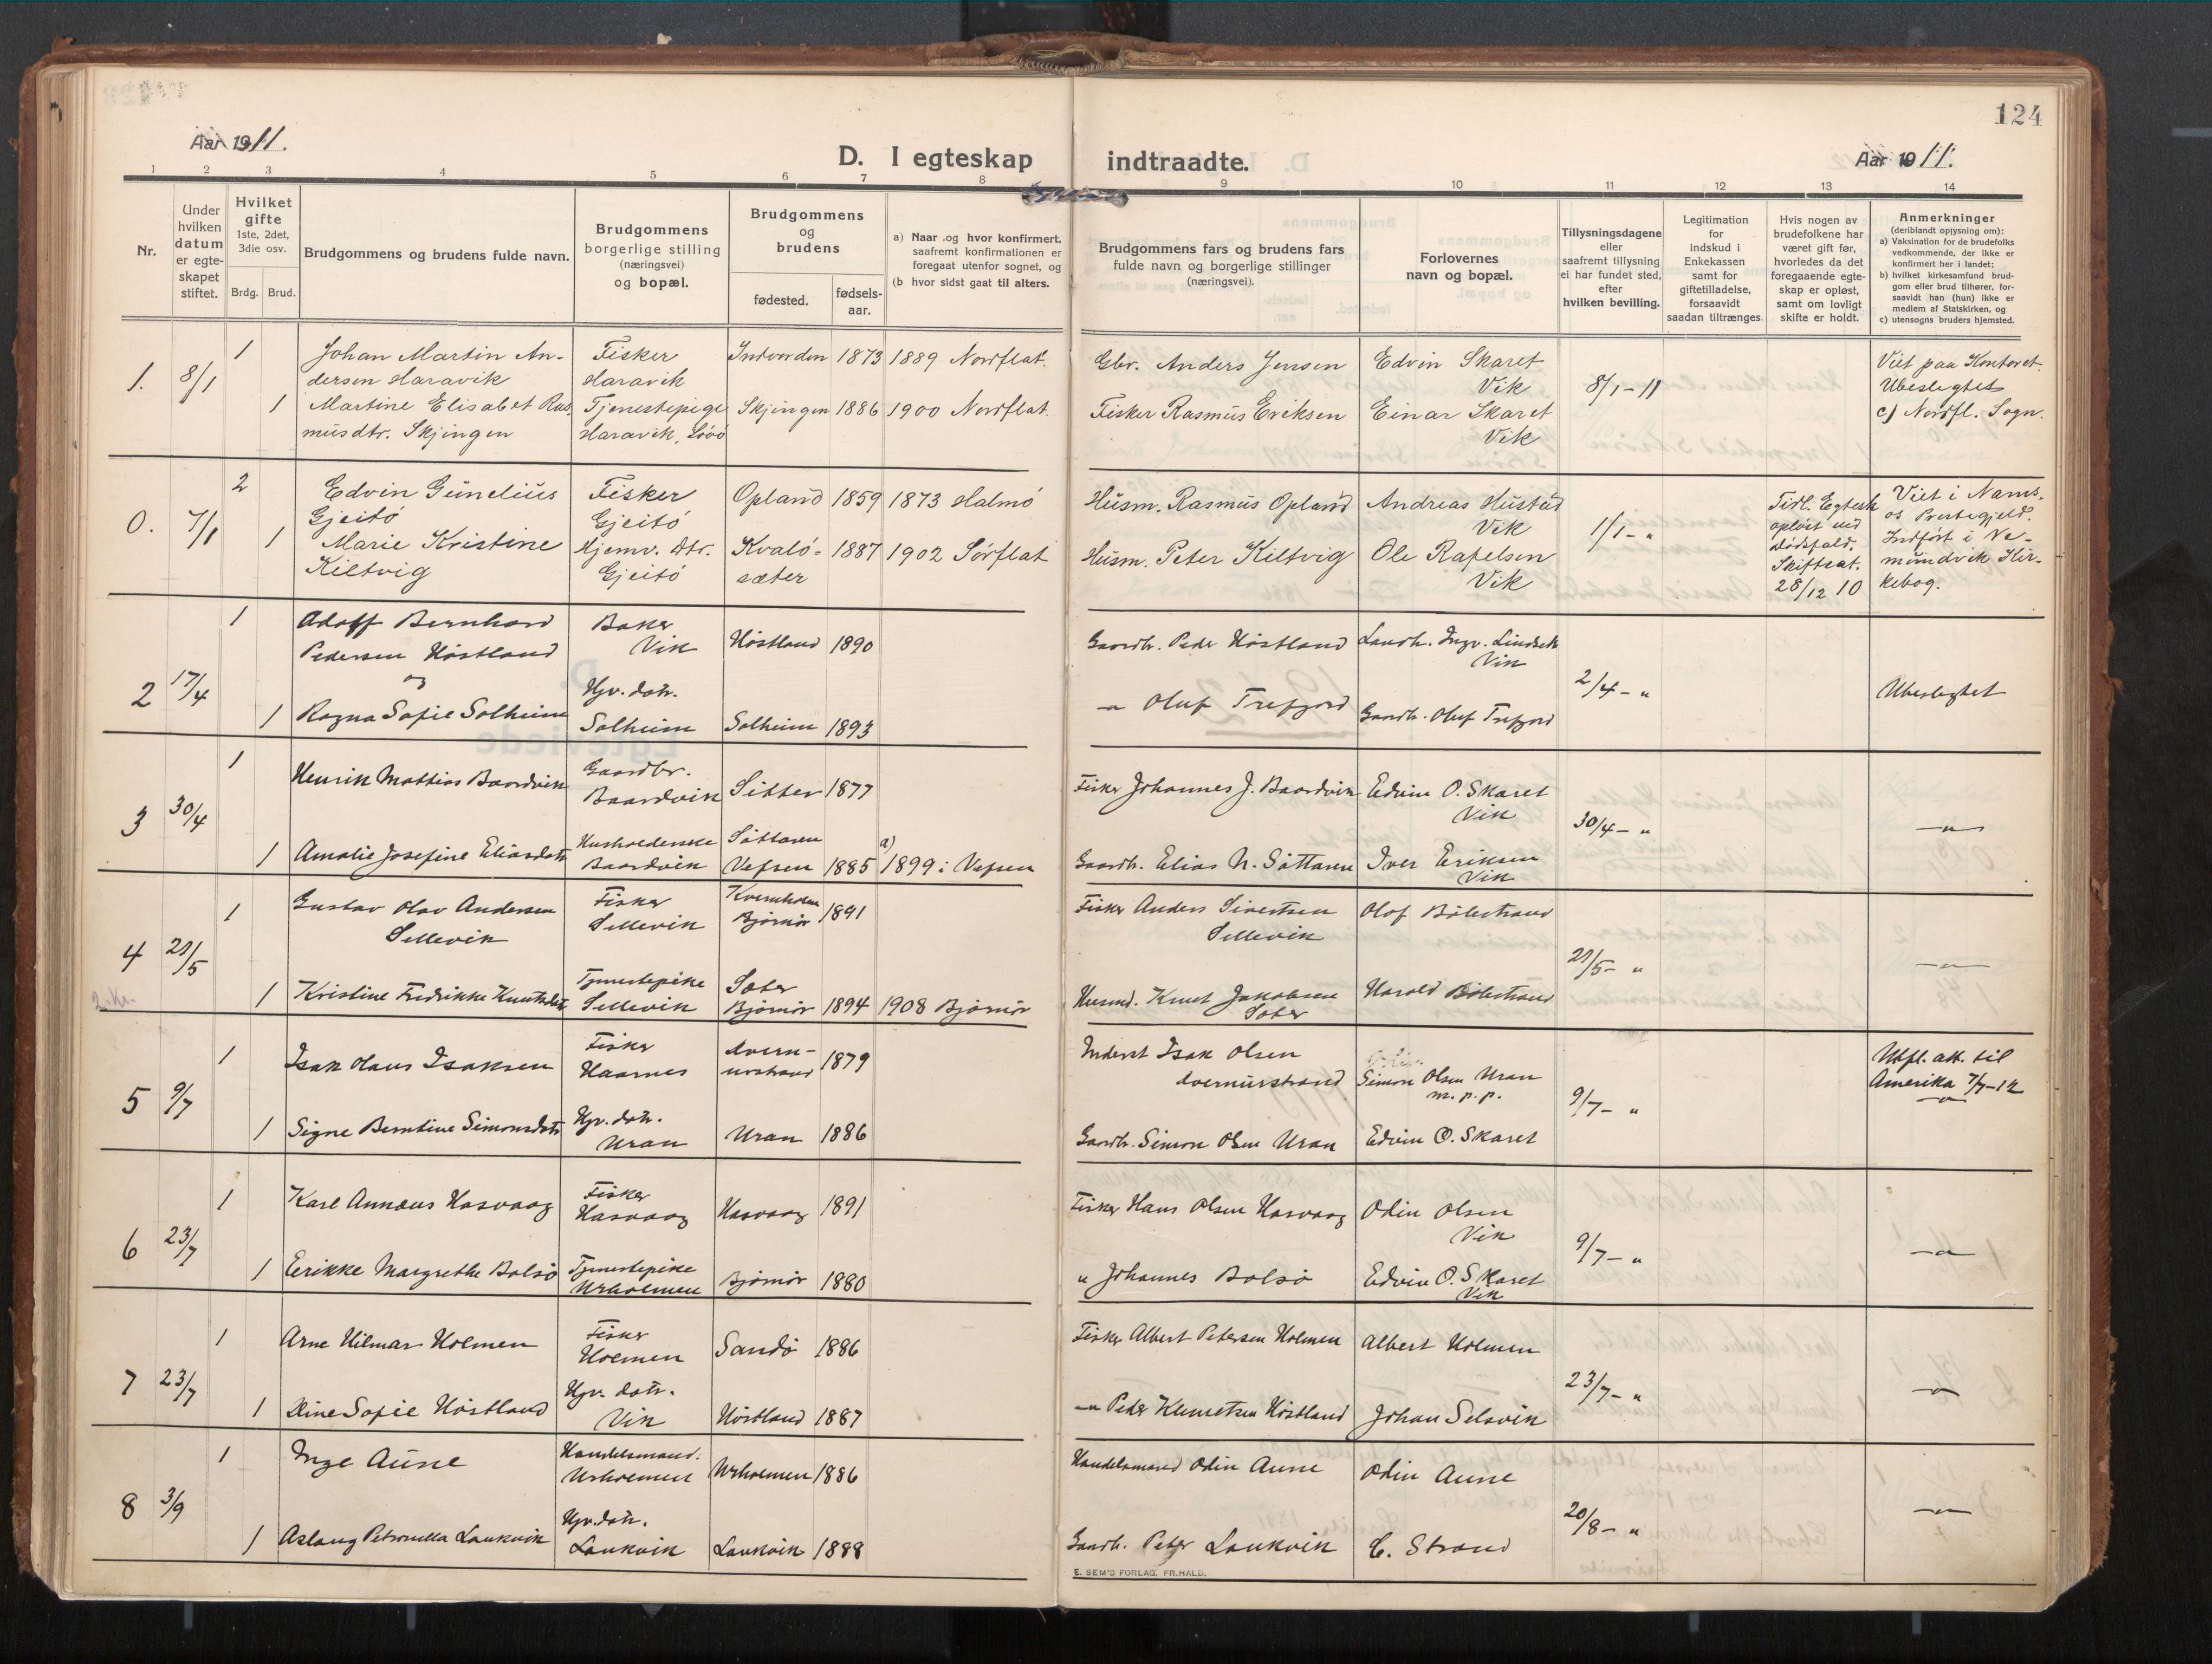 124
Aar 1911.
D. I egteskap indtraadte.
Aar 1911.
1 2 3 4 5 6 7 8 9 10 11 12 13 14
Nr.
Under
hvilken
datum
er egte-
skapet
stiftet.
Hvilket
gifte
1ste, 2det,
3die osv.
Brdg. Brud.
Brudgommens og brudens fulde navn.
Brudgommens
borgerlige stilling
(næringsvei)
og bopæl.
Brudgommens
og
brudens
fødested.
fødsels-
aar.
a) Naar og hvor konfirmert,
saafremt konfirmationen er
foregaat utenfor sognet, og
(b hvor sidst gaat til alters.
Brudgommens fars og brudens fars
fulde navn og borgerlige stillinger
(næringsvei).
Forlovernes
navn og bopæl.
Tillysningsdagene
eller
saafremt tillysning
ei har fundet sted,
efter
hvilken bevilling.
Legitimation
for
indskud i
Enkekassen
samt for
giftetilladelse,
forsaavidt
saadan tiltrænges.
Hvis nogen av
brudefolkene har
været gift før,
hvorledes da det
foregaaende egte-
skap er opløst,
samt om lovligt
skifte er holdt.
Anmerkninger
(deriblandt oplysning om):
a) Vaksination for de brudefolks
vedkommende, der ikke er
konfirmert her i landet;
b) hvilket kirkesamfund brud-
gom eller brud tilhører, for-
saavidt han (hun) ikke er
medlem af Statskirken, og
c) utensogns bruders hjemsted.
1. 8/1
1 Johan Martin An-
dersen Haravik
Fisker
Haravik
Indvorden 1873 1889 Nordflat.
Gbr. Anders Jensen
Edvin Skaret
Vik
8/1 - 11
Viet paa Kontoret.
Ubeslegtet
c) Nordfl. Sogn.
1 Martine Elisabet Ras-
musdtr. Skjingen
Tjenestepige
Haravik,
Skjingen 1886 1900 Nordflat.
Fisker Rasmus Eriksen
Einar Skaret
Vik
0. 7/1
2 Edvin Gunelius
Gjeitö
Fisker
Gjeitö
Opland 1859 1873 Halmö
Husm. Rasmus Opland
Andreas Hustad
Vik
1/1 - "
Tidl. Egtesk
opløst ved
dödsfald.
Skifteat.
28/12 10
Viet i Nams-
os Prestegjeld.
Indfört i Ve-
mundvik Kir-
kebog.
1 Marie Kristine
Kiltvig
Hjemv. dtr.
Gjeitö
Kvalö-
sæter
1887 1902 Sörflat
Husm. Peter Kiltvig
Ole Rafelsen
Vik
2 17/4
1 Adolf Bernhard
Pedersen Höstland
og
Baker
Vik
Höstland 1890
Gaardbr. Peder Höstland
Landh. Ingv. Lindseth
Vik
2/4 - "
Ubeslegtet
1 Ragna Sofie Solheim
Hjv. datr.
Solheim
Solheim 1893
-"- Oluf Trefjord
Gaardbr. Oluf Trefjord
3 30/4
1 Henrik Mathias Baardvik
Gaardbr.
Baardvik
Sitter 1877
Fisker Johannes J. Baardvik
Edvin O. Skaret
Vik
30/4 - "
-"-
1 Amalie Josefine Eliasdatr
Husholderske
Baardvik
Söttaren
Vefsen 1885
a)
1899 i Vefsen
Gaardbr. Elias N. Söttaren
Iver Eriksen
Vik
4 21/5
2. Kr.
1 Gustav Olav Andersen
Sellevik
Fisker
Sellevik
Kvernholm
Björnör 1891
Fisker Anders Sivertsen
Sellevik
Olof Bölestrand
21/5 - "
-"-
1 Kristine Fredrikke Knutsdatr
Tjenestepike
Sellevik
Sæter
Björnör 1894 1908 Björnör
Husmd. Knut Jakobsen
Sæter
Harald Bölestrand
5 9/7
1 Isak Olaus Isaksen
Fisker
Haarnes
1879
Inderst Isak Olsen
Simon Olsen Uran
m. p. p.
9/7 - "
Utfl. att. til
Amerika 7/7-12
-"-
1 Signe Berntine Simonsdatr
Hjv. datr.
Uran
Uran 1886
Gaardbr. Simon Olsen Uran
Edvin O. Skaret
6 23/7
1 Karl Annæus Hasvaag
Fisker
Hasvaag
Hasvaag 1891
Fisker Hans Olsen Hasvaag
Odin Olsen
Vik
9/7 - "
-"-
1 Erikke Margrethe Bolsö
Tjenestepike
Urholmen
Björnör 1880
" Johannes Bolsö
Edvin O. Skaret
Vik
7 23/7
1 Arne Hilmar Holmen
Fisker
Holmen
Sandö 1886
Fisker Albert Petersen Holmen
Albert Holmen
23/7 - "
-"-
1 Sofie Höstland
Hjv. datr.
Vik
Höstland 1887
-"- Peder Klemetsen Höstland
Johan Selsvik
8 3/9
1 Inge Aune
Handelsmand.
Urholmen
Urholmen 1886
Handelsmand Odin Aune
Odin Aune
20/8 - "
-"-
1 Aslaug Petronella Laukvik
Hjv. datr.
Laukvik
Laukvik 1888
Gaardbr. Peter Laukvik
C. Strand
E. SEM'S FORLAG, FR.HALD.